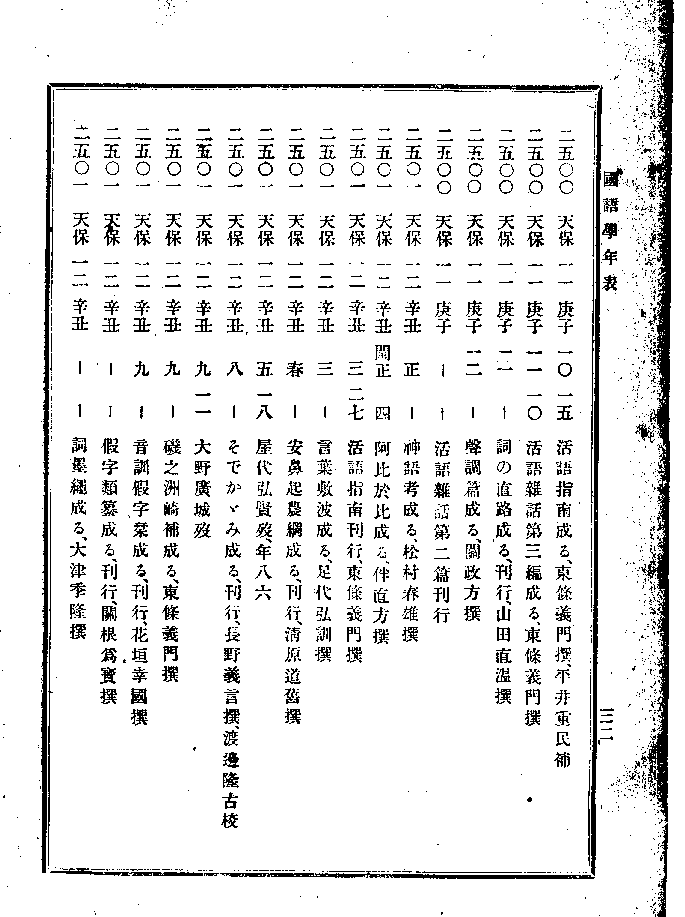 國語學年表
三二
二五〇〇 天保 一一 庚子 一〇 一五 活語指南成る、東條義門撰、平井重民補
二五〇〇 天保 一一 庚子 一一 一〇 活語雜話第三編成る、東條義門撰
二五〇〇 天保 一一 庚子 一一 ー 詞の直路成る、刊行、山田直温撰
二五〇〇 天保 一一 庚子 一二 ー 聲調篇成る、關政方撰
二五〇〇 天保 一一 庚子 ー ー 活語雜話第二篇刊行
二五〇一 天保 一二 辛丑 正 ー 神語考成る、松村春雄撰
二五〇一 天保 一二 辛丑 閏正 四 阿比於比成る、伴直方撰
二五〇一 天保 一二 辛丑 三 二七 活語指南刊行、東條義門撰
二五〇一 天保 一二 辛丑 三 ー 言葉敷波成る、足代弘訓撰
二五〇一 天保 一二 辛丑 春 ー 安鼻起農綱成る、刊行、清原道舊撰
二五〇一 天保 一二 辛丑 五 一八 屋代弘賢歿、年八六
二五〇一 天保 一二 辛丑 八 ー そでかゞみ成る、刊行、長野義言撰、渡邊隆古校
二五〇一 天保 一二 辛丑 九 一一 大野廣城歿
二五〇一 天保 一二 辛丑 九 ー 磯之洲崎補成る、東條義門撰
二五〇一 天保 一二 辛丑 九 ー 音訓假字栞成る、刊行、花垣幸國撰
二五〇一 天保 一二 辛丑 ー ー 假字類纂成る、刊行、關根爲寶撰
二五〇一 天保 一二 辛丑 ー ー 詞墨繩成る、大津季隆撰